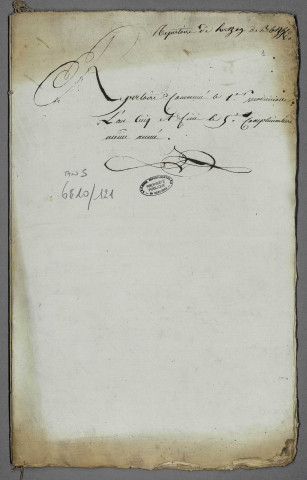 Repertoire de
Repertoire Commencé le 1er vendémiaire
L'an Cinq et finie le 5e Complementaire
même année.
AN 5
6E10/121